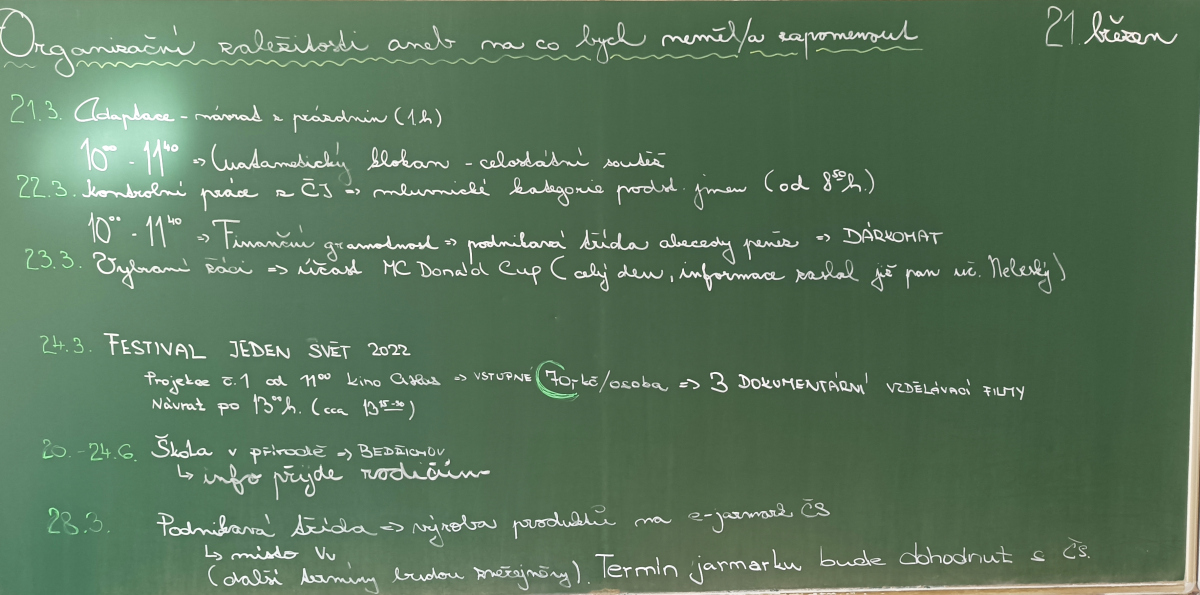 Organizační záležitosti aneb na co bych neměl/a zapomenout
21. březen
21.3. Adaptace - návrat z prázdnin (1h)
10⁰⁰ - 11⁴⁰ => Matematický klokan - celostátní soutěž
22.3. Kontrolní práce z ČJ => mluvnické kategorie podst. jmen (od 8⁵⁰h.)
10⁰⁰ - 11⁴⁰ => Finanční gramotnost => podnikavá třída abecedy peněz => DÁRKOMAT
23.3. Vybraní žáci => účast MC Donald Cup (celý den, informace zaslal již pan uč.
24.3. FESTIVAL JEDEN SVĚT 2022
Projekce č.1 od 11⁰⁰ kino => VSTUPNÉ 70,-kč/osoba => 3 DOKUMENTÁRNÍ VZDĚLÁVACÍ FILMY
Návrat po 13⁰⁰h. (cca 13¹⁵⁻³⁰)
20.-24.6. Škola v přírodě => BEDŘICHOV
↳ info přijde rodičům
28.3. Podnikavá třída => výroba produktů na e-jarmark ČS
↳ místo Vv
(další termíny budou zveřejněny). Termín jarmarku bude dohodnut s ČS.